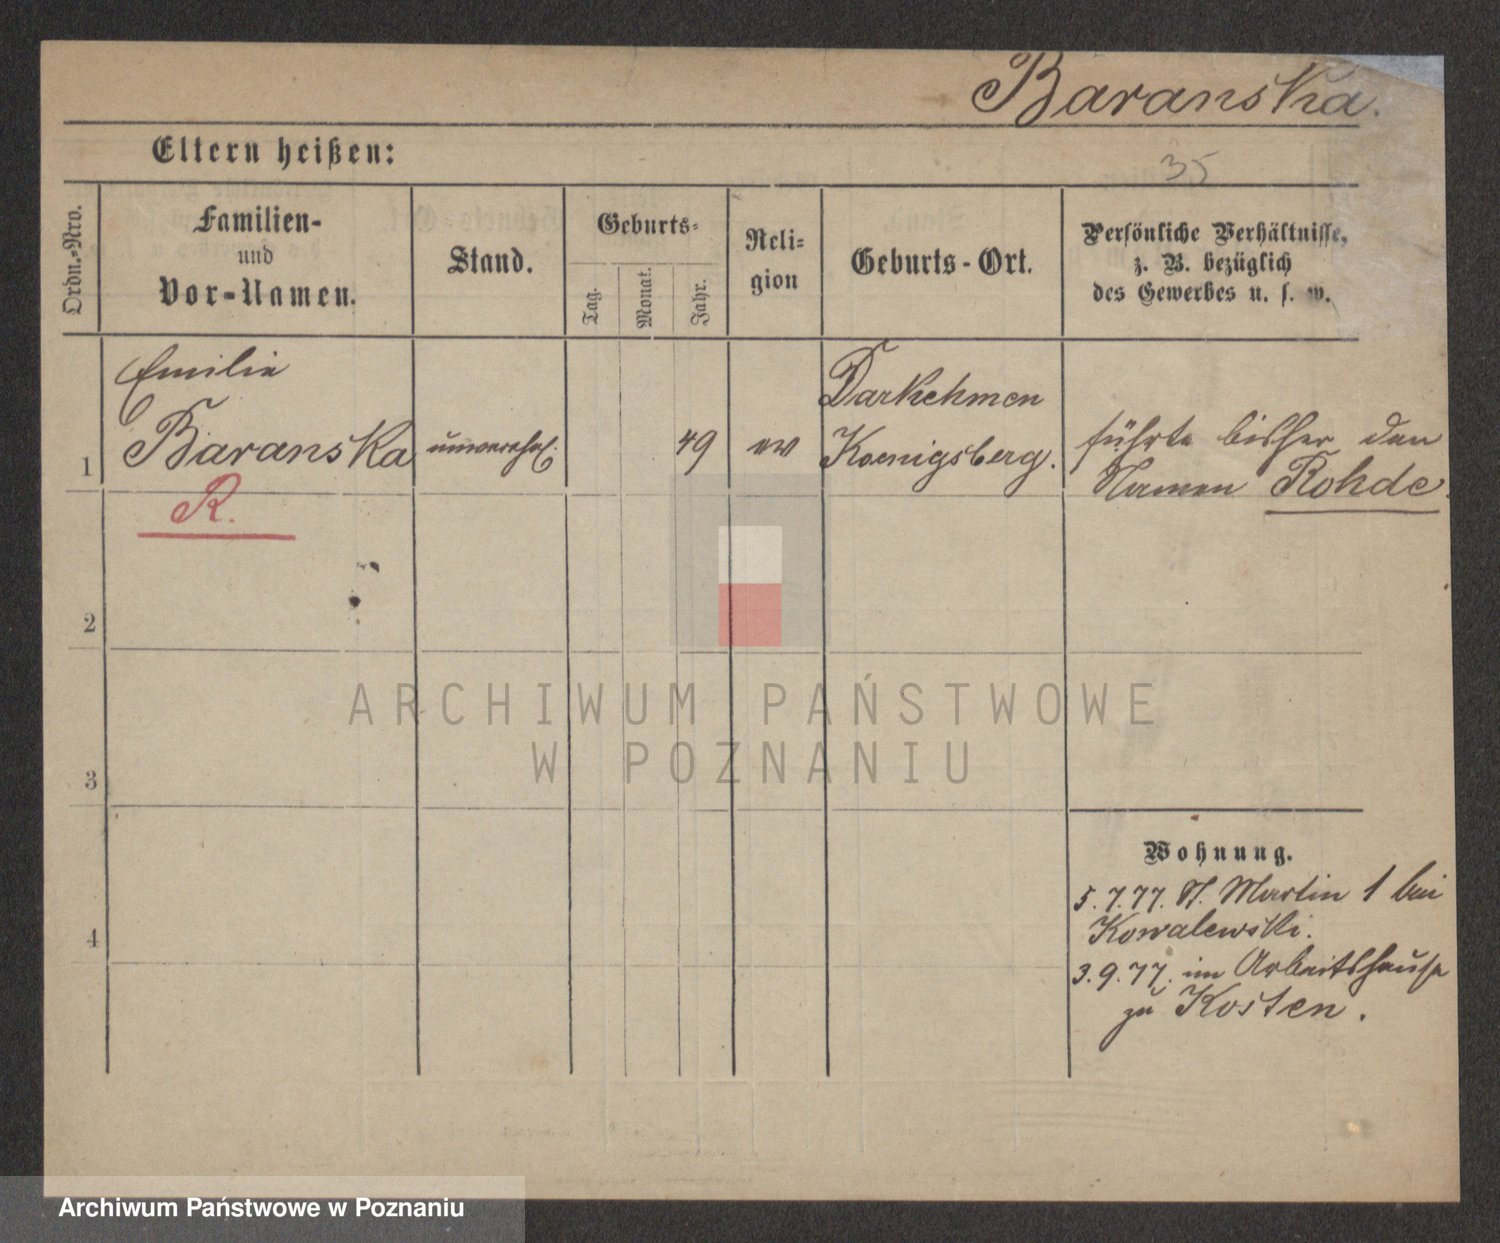 Baranska.
Eltern heißen:
35
Ordn.-Nro.
Familien-
und
Vor-Namen.
Stand.
Geburts-
Tag.
Monat.
Jahr.
Reli-
gion
Geburts-Ort.
Persönliche Verhältnisse,
z. B. bezüglich
des Gewerbes u. s. w.
1
Emilie
Baranska
R.
unverehel.
49
ev
Darkehmen
Koenigsberg.
führte bisher den
Namen Rohde.
2
3
4
Wohnung.
5.7.77. St. Martin 1 bei
Kowalewski.
3.9.77. im Arbeitshause
zu Kosten.
ARCHIWUM PAŃSTWOWE
W POZNANIU
Archiwum Państwowe w Poznaniu